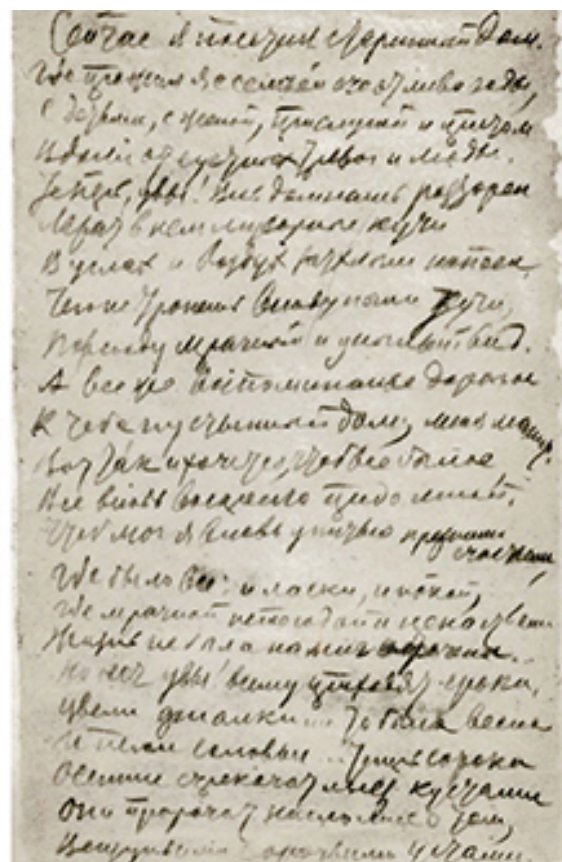 Сейчас я посетил старинный дом.
Где прожил я с семьёй счастливо годы,
С детьми, с женой, прислугой и
Вдали от тревог и моды.
Теперь, увы! Весь дом наш разорен
Лежат в нем мусорные кучи
В углах и воздух гнилью напоен,
тучи,
Повсюду мрачный и унылый вид.
А все же воспоминанье дорогое
К тебе пустынный дом, меня манит.
Вот так и хочется, чтоб все былое
Все вновь воскресло предо мной.
Чтоб мог я вновь упиться прежним счастьем,
Где было все: и ласки, и покой,
Где мрачной непогодой и ненастьем
Жизнь не была на миг
Но нет увы! всему приходят сроки,
Цвели фиалки... То была весна
И пели соловьи... Теперь сороки
Осенние стрекочат меж кустами
Они пророчат нам
устами.